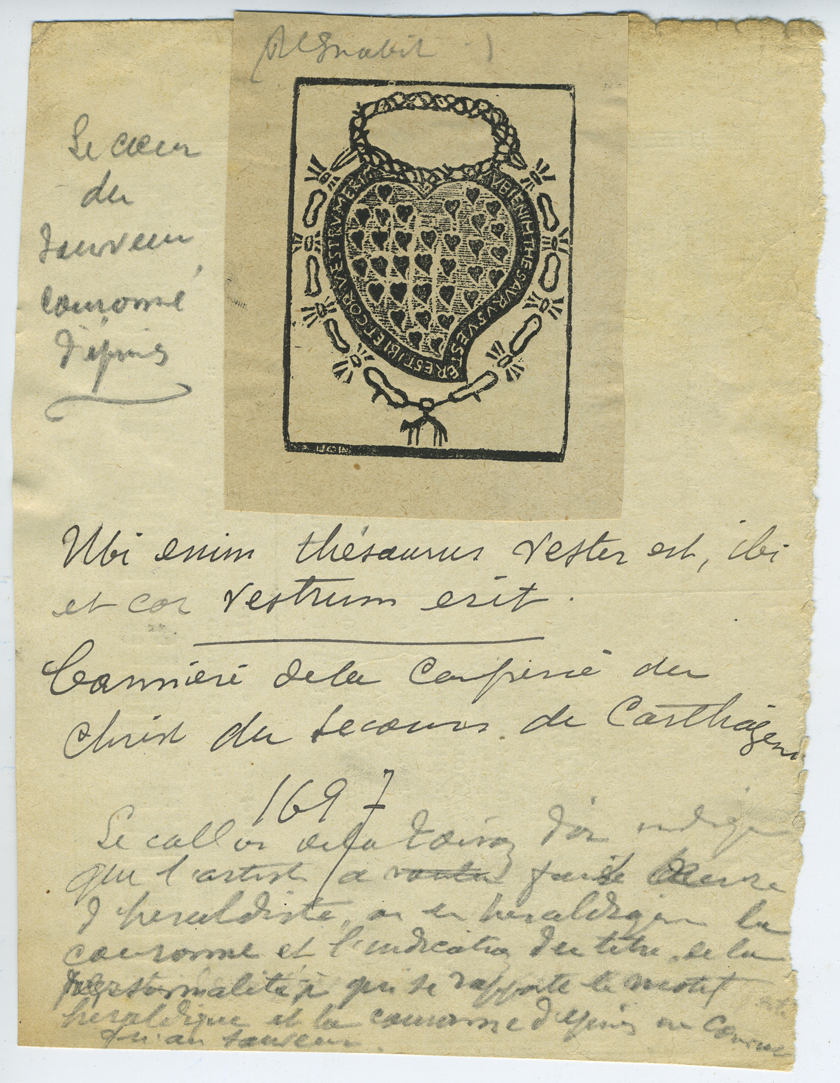 Le cœur
du
Sauveur
couronné
d'épines
VBI ENIM THESAVRVS VEST
ER EST IBI ET COR VESTRVM ERIT
Ubi enim thésaurus vester est, ibi
et cor vestrum erit.
Bannière de la Confrérie du
Christ du Secours de Carthagène
1697
Le collier de la Toison d'or indique
que l'artiste a voulu faire œuvre
d'heraldiste, or en heraldique la
couronne est l'indication du titre de la
personnalité à qui se rapporte le motif
heraldique et la couronne d'épines ne convient
qu'au Sauveur.